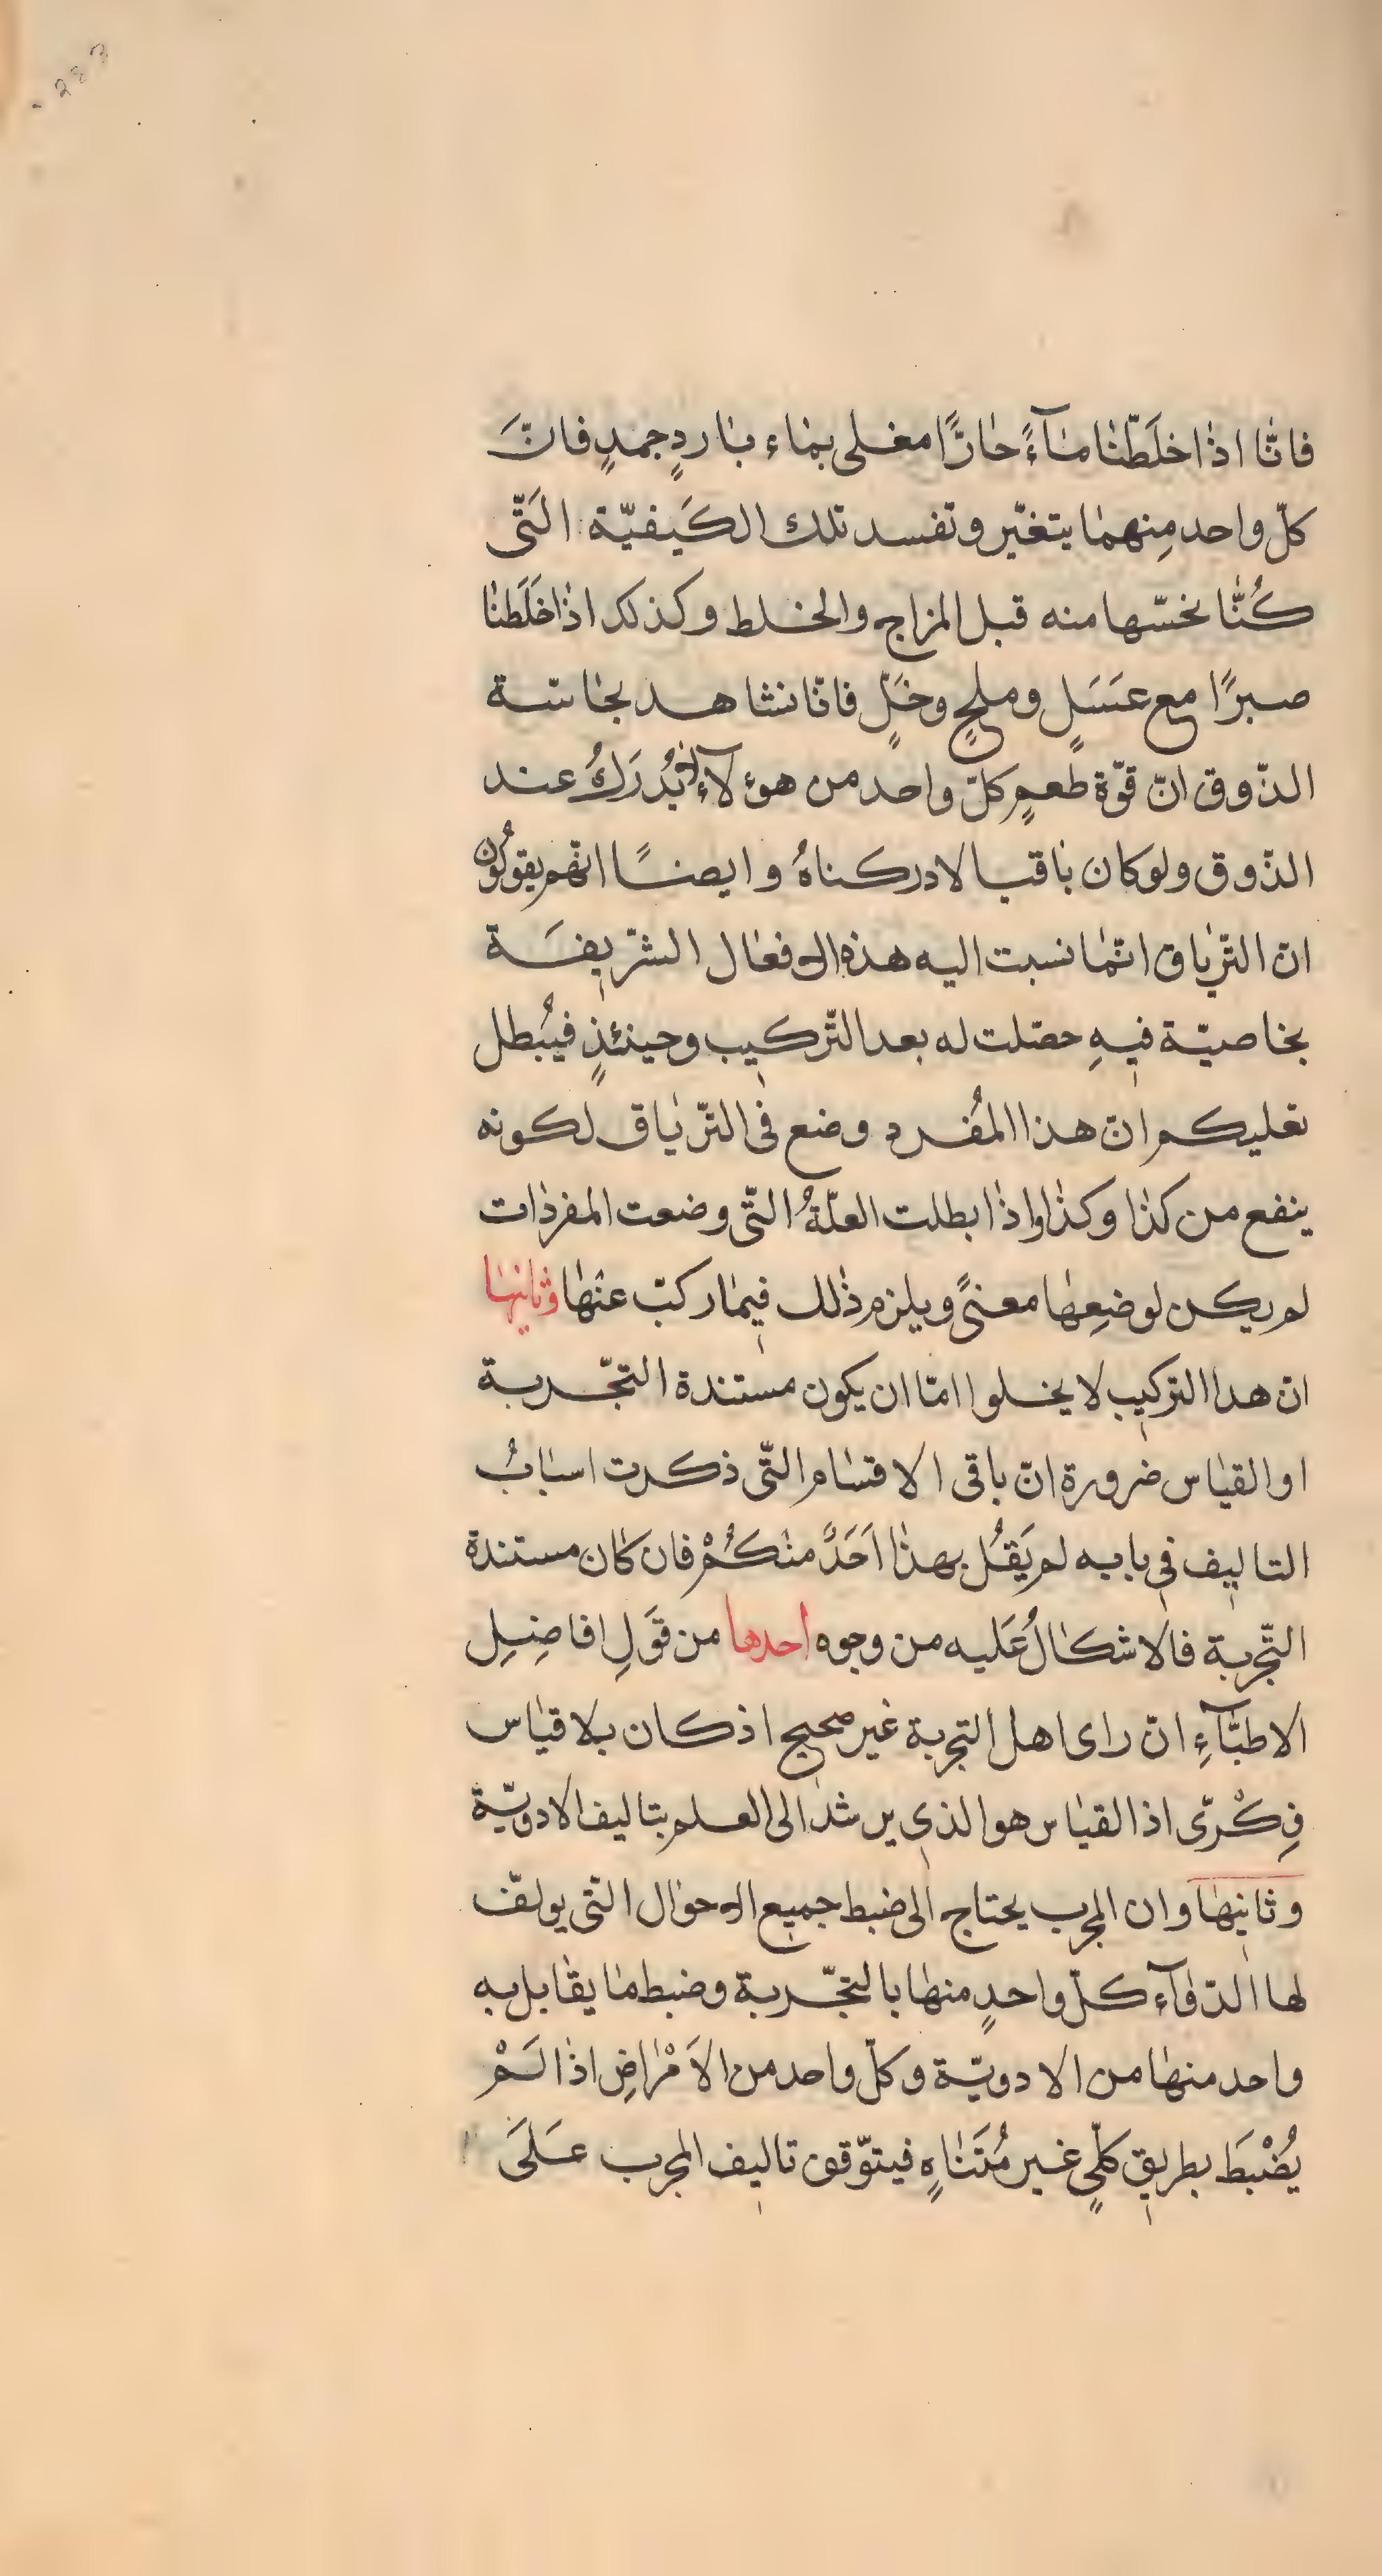 283
فانّا اذا خلَطّنا مآءً حارًّا مغلى بماء باردٍ جمدٍ فانّ
كلّ واحد مِنهما يتغيّر وتفسد تلك الكَيفيّة الَتّى
كُنّا نخسّها منه قبل المزاج والخلط وكذلك اذا خَلَطنا
صبرًا مع عسَلٍ وملحٍ وخَلٍّ فانّا نشاهد بحاسّة
الذّوق انّ قوّة طعمٍ كلّ واحد من هؤلآءِ لا يُدرَكُ عند
الذّوق ولو كان باقيا لادركناهُ وايضًا انّهم يقولُون
انّ التّرياق انّما نسبت اليه هذه الافعال الشّريفَة
بخاصيّة فيهِ حصّلت له بعد التّركيب وحينئذٍ فيُبطل
تعليكم انّ هذا المُفرد وضع فى التّرياق لكونه
ينفع من كذا وكذا واذا بطلت العلّةُ التّى وضعت المفردات
لم يكن لوضعِها معنىً ويلزم ذلك فيما ركبّ عنها وثانيها
انّ هدا التركيب لا يخلوا امّا ان يكون مستندة التجّربة
او القياس ضرورة انّ باقى الاقسام التّى ذكرت اسبابُ
التاليف فى بابه لم يَقُل بهذا اَحَدً منكُمْ فان كان مستندة
التّجربة فالاشكالُ عَليه من وجوه احدها من قَولِ افاضِلِ
الاطبّآءِ انّ راى اهل التجربة غير صحيح اذ كان بلا قياس
فِكْرّى اذ القياس هو الذى يرشد الى العلم بتاليف الادويّة
وثانيها وان المجرب يحتاج الى ضبط جميع الاحوال التّى يولّف
لها الدّوآء كلّ واحدٍ منها بالتجّربة وضبط ما يقابل به
واحد منها من الادويّة وكلّ واحد من الاَمْراضِ اذا لَمْ
يُضْبَطَ بطريق كلّىٍ غير مُتَناهٍ فيتوّقف تاليف المجرب عَلَىَ